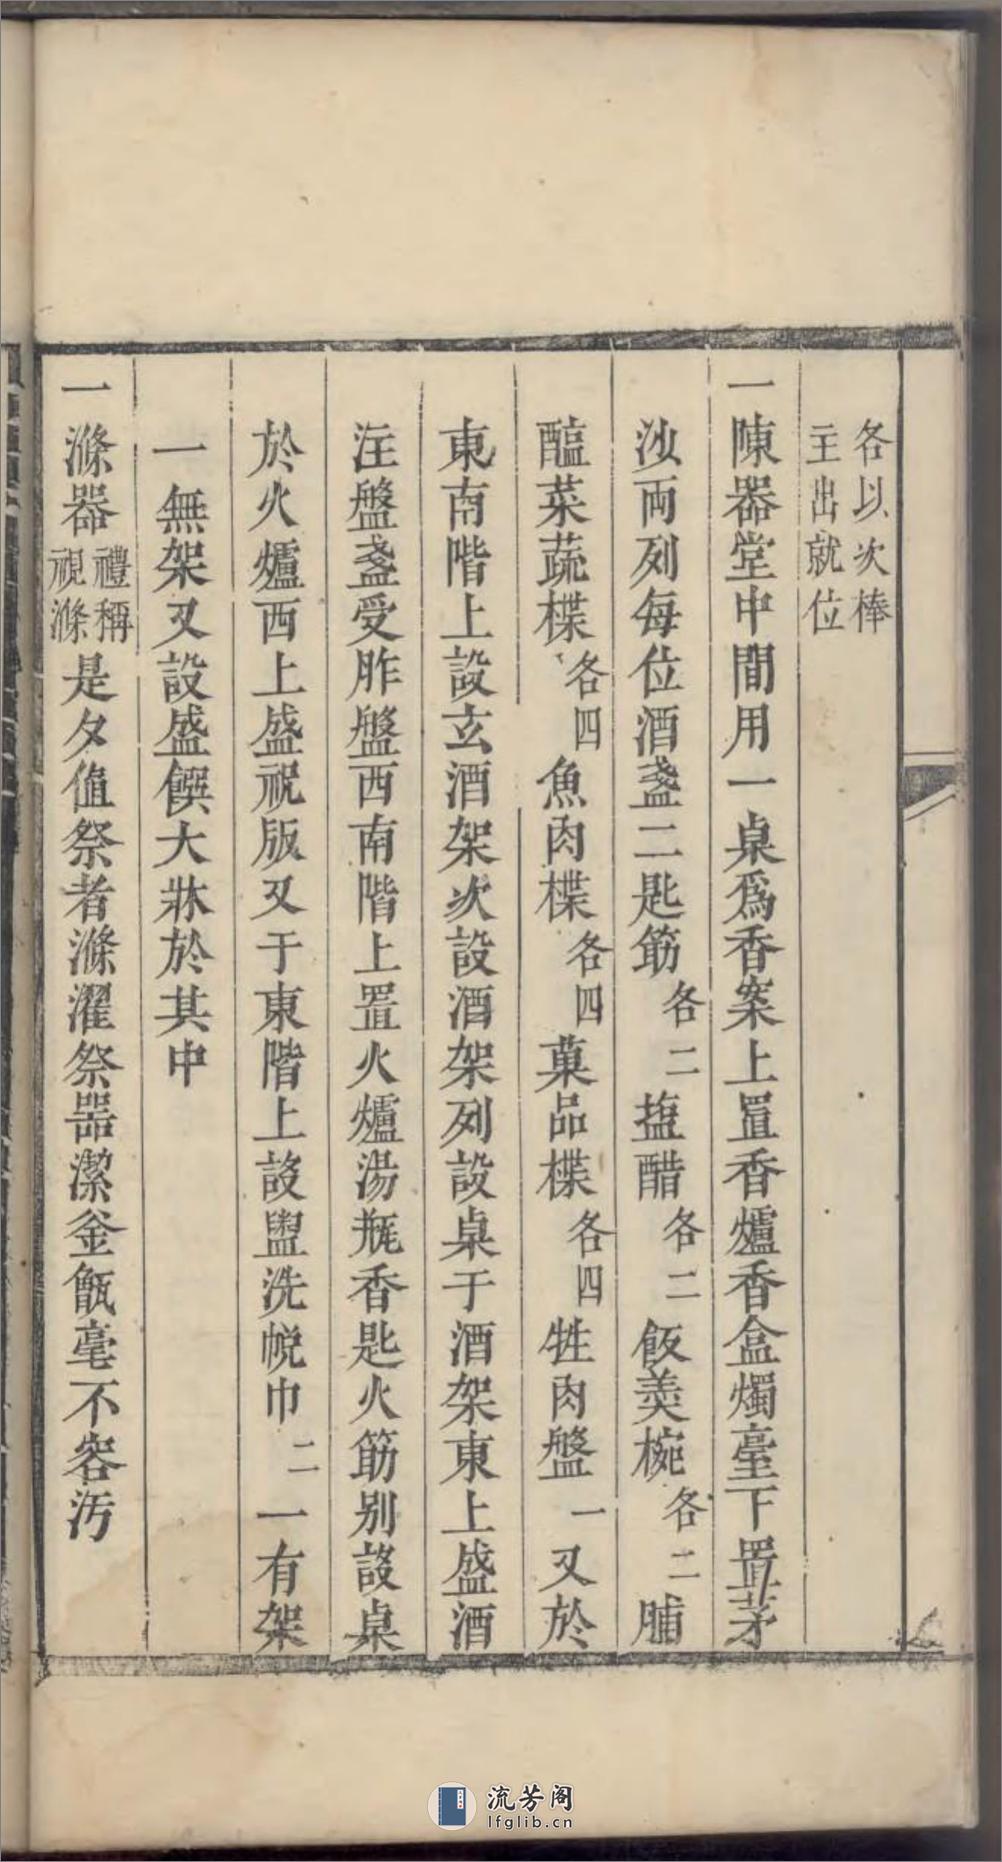 各以次棒
主出就位
一陳器堂中間用一桌爲香案上置香爐香盒燭臺下置茅
沙両列每位酒盞二匙筯各二塩醋各二飯羮椀各二脯
醢菜蔬楪各四魚肉楪各四菓品楪各四牲肉盤一又於
東南階上設玄酒架次設酒架列設桌于酒架東上盛酒
注盤盞受胙盤西南階上置火爐湯瓶香匙火筯别設桌
於火爐西上盛祝版又于東階上設盥洗帨巾二一有架
一無架又設盛饌大牀於其中
一滌器禮稱視滌是夕值祭者滌濯祭器潔釜甑毫不容汚
流芳阁
lfglib.cn